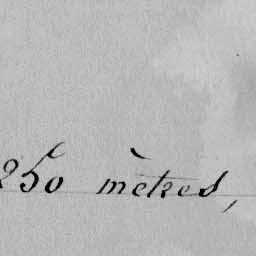 250 mètres,